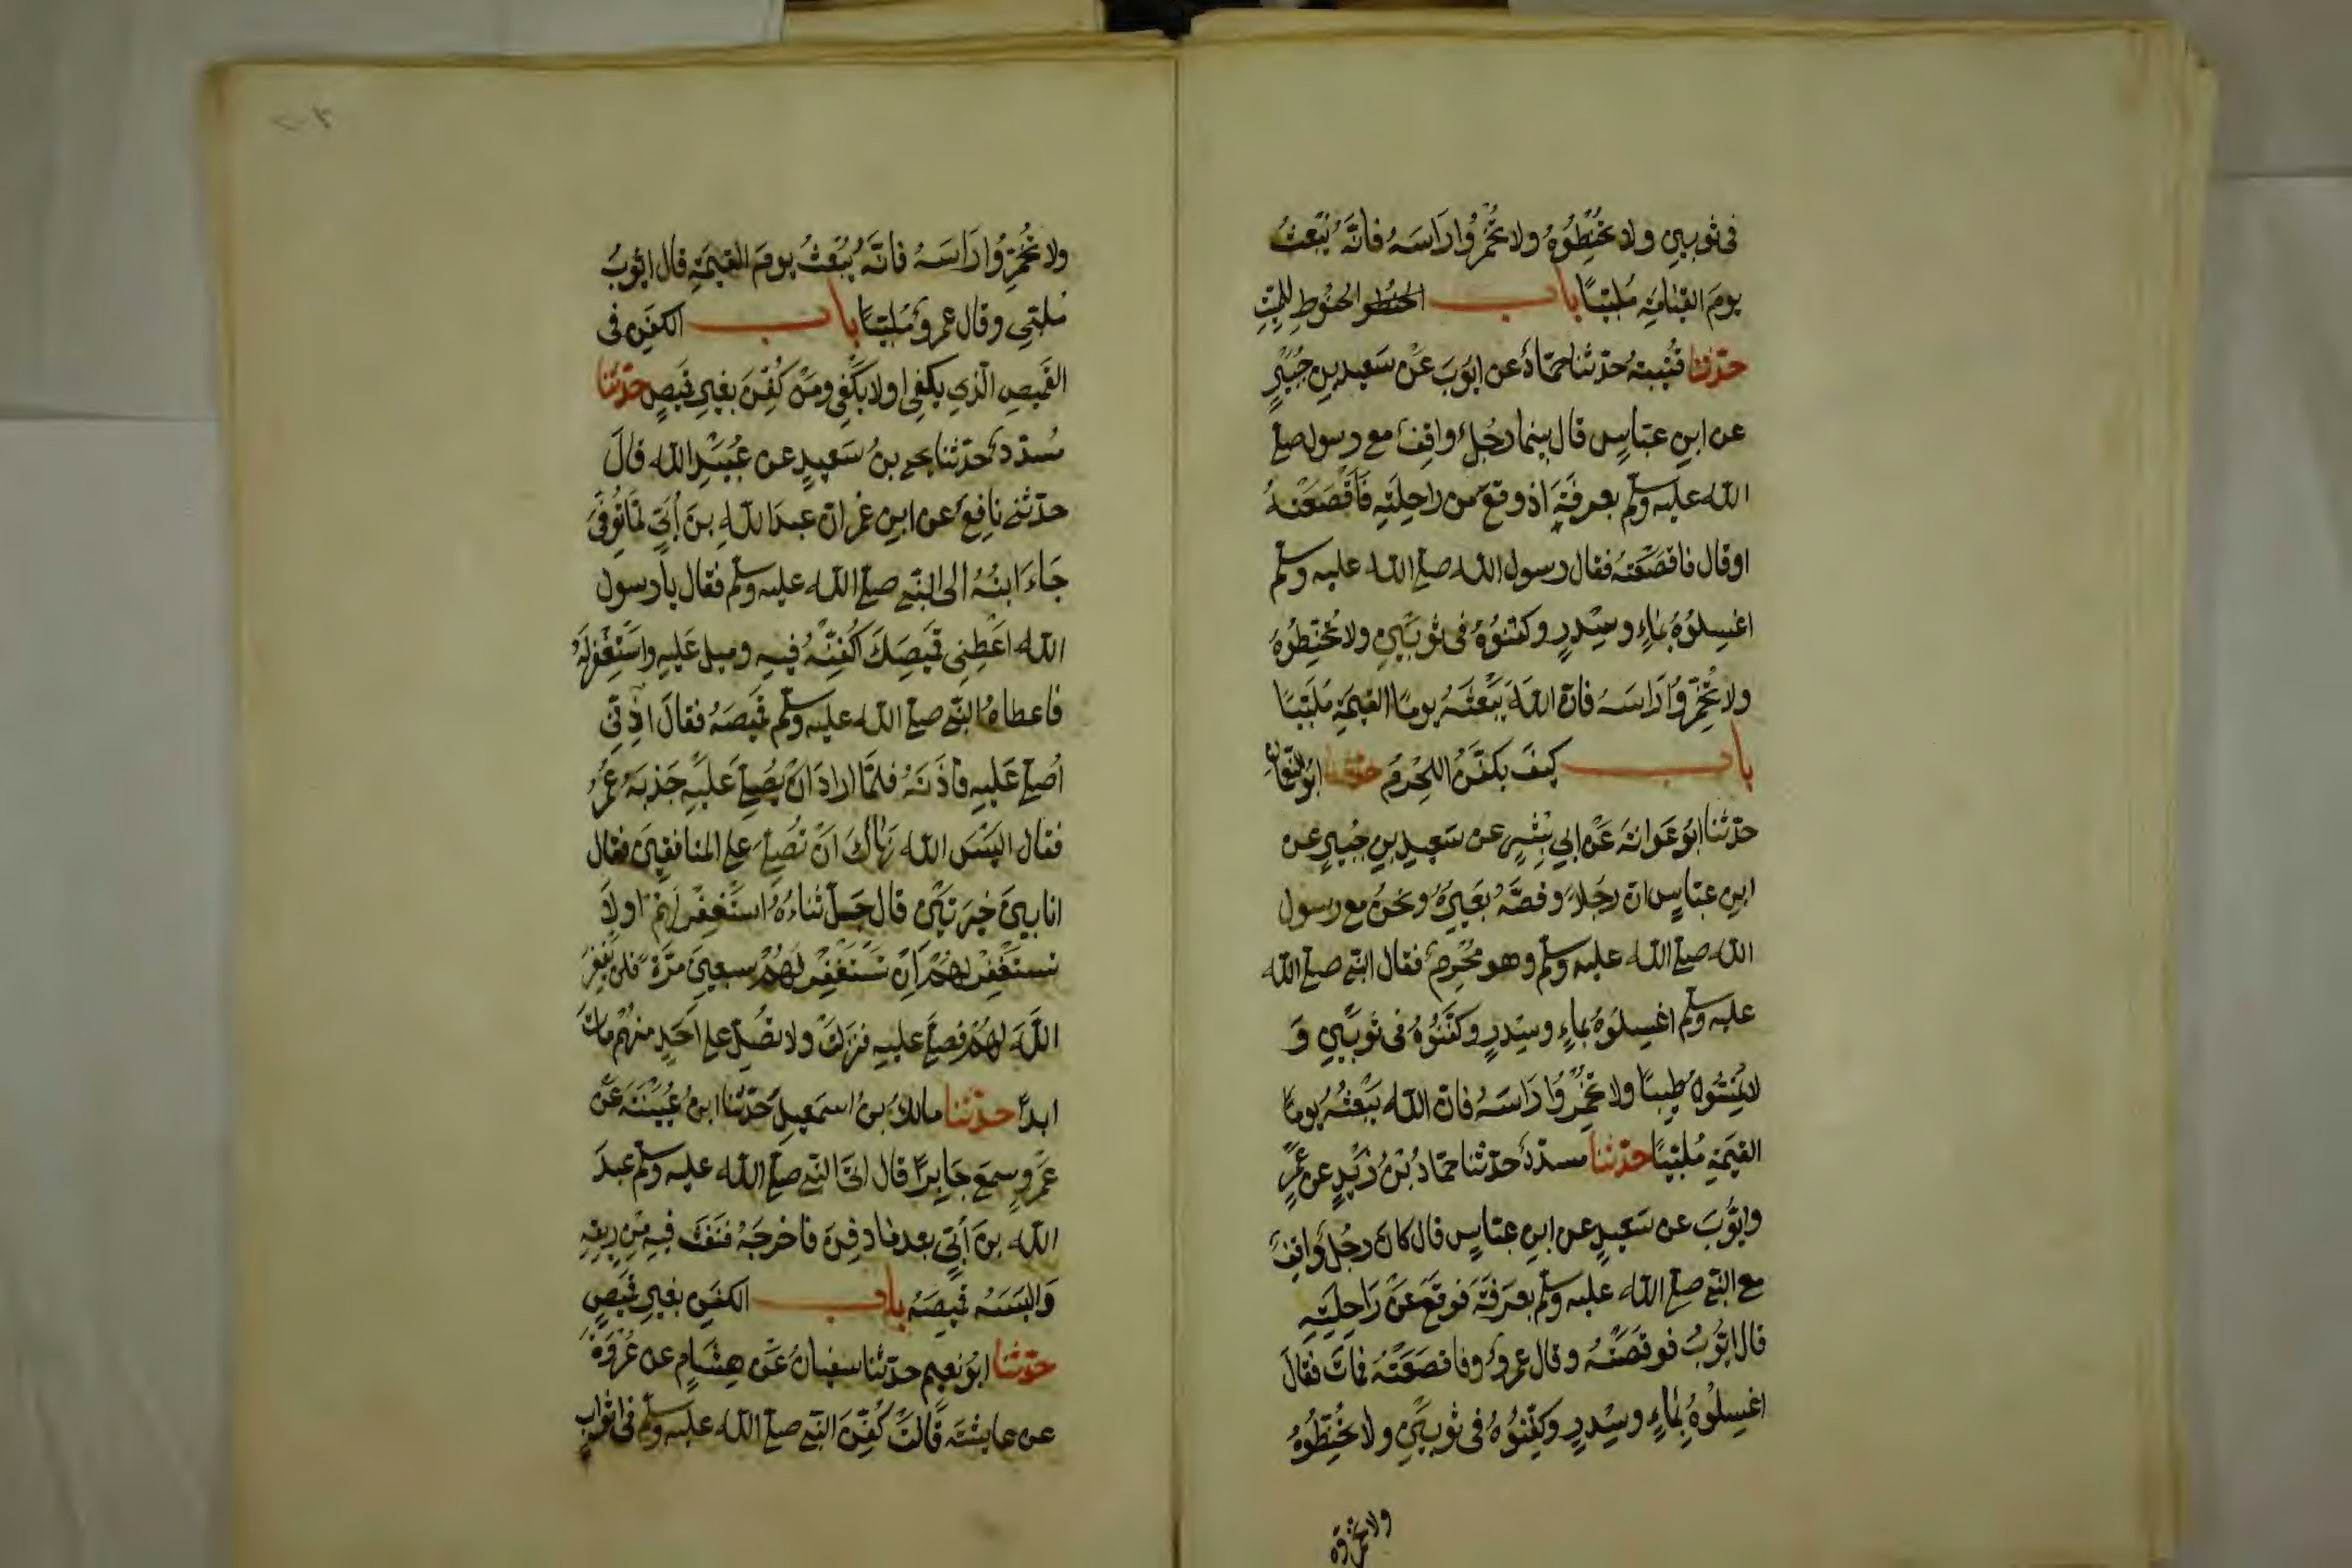 فى ثوبين ولا تحنطوه ولا تخمروا راسه فانه يبعث
يوم القيامة ملبيا باب الحنطو الحنوط للميت
حدثنا قتيبة حدثنا حماد عن ايوب عن سعيد بن جبير
عن ابن عباس قال بينما رجل واقف مع رسول صلى
الله عليه وسلم بعرفة اذ وقع من راحلته فاقصعته
او قال فاقصعته فقال رسول الله صلى الله عليه وسلم
اغسلوه بماء وسدر وكفنوه فى ثوبين ولا تحنطوه
ولا تخمروا راسه فان الله يبعثه يوما القيمة ملبيا
باب كيف يكفن المحرم حدثنا ابو النعمان
حدثنا ابو عوانة عن ابي بشر عن سعيد بن جبير عن
ابن عباس ان رجلا وقصه بعيره ونحن مع رسول
الله صلى الله عليه وسلم وهو محرم فقال النبى صلى الله
عليه وسلم اغسلوه بماء وسدر وكفنوه فى ثوبين و
لا تمسوه طيبا ولا تخمروا راسه فان الله يبعثه يوما
القيمة ملبيا حدثنا مسدد حدثنا حماد بن زيد عن عمرو
وايوب عن سعيد عن ابن عباس قال كان رجل واقف
مع النبى صلى الله عليه وسلم بعرفة فوقع عن راحلته
قال ايوب فوقصته وقال عمرو وفاقصعته فمات فقال
اغسلوه بماء وسدر وكفنوه فى ثوبين ولا تحنطوه
ولا تخمروا
ولا تخمروا راسه فانه يبعث يوم القيمة قال ايوب
ملبي وقال عمرو ملبيا باب الكفن فى
القميص الذي يكفي او لا يكفي ومن كفن بغير قميص حدثنا
مسدد حدثنا يحيى بن سعيد عن عبيد الله قال
حدثني نافع عن ابن عمر ان عبد الله بن أبي لما توفى
جاء ابنه الى النبى صلى الله عليه وسلم فقال يا رسول
الله اعطنى قميصك اكفنه فيه وصل عليه واستغفر له
فاعطاه النبى صلى الله عليه وسلم قميصه فقال اذنى
اصلى عليه فاذنه فلما اراد ان يصلى عليه جذبه عمر
فقال اليس الله نهاك ان تصلى على المنافقين فقال
انا بين خيرتين قال جل ثناءه استغفر لهم او لا
تستغفر لهم ان تستغفر لهم سبعين مرة فلن يغفر
الله لهم فصلى عليه فنزلت ولا تصل على احد منهم مات
ابدا حدثنا مالك بن اسمعيل حدثنا ابن عيينة عن
عمرو سمع جابرا قال اتى النبى صلى الله عليه وسلم عبد
الله بن أبي بعد ما دفن فاخرجه فنفث فيه من ريقه
والبسه قميصه باب الكفن بغير قميص
حدثنا ابو نعيم حدثنا سفيان عن هشام عن عروة
عن عايشة قالت كفن النبى صلى الله عليه وسلم فى اثواب